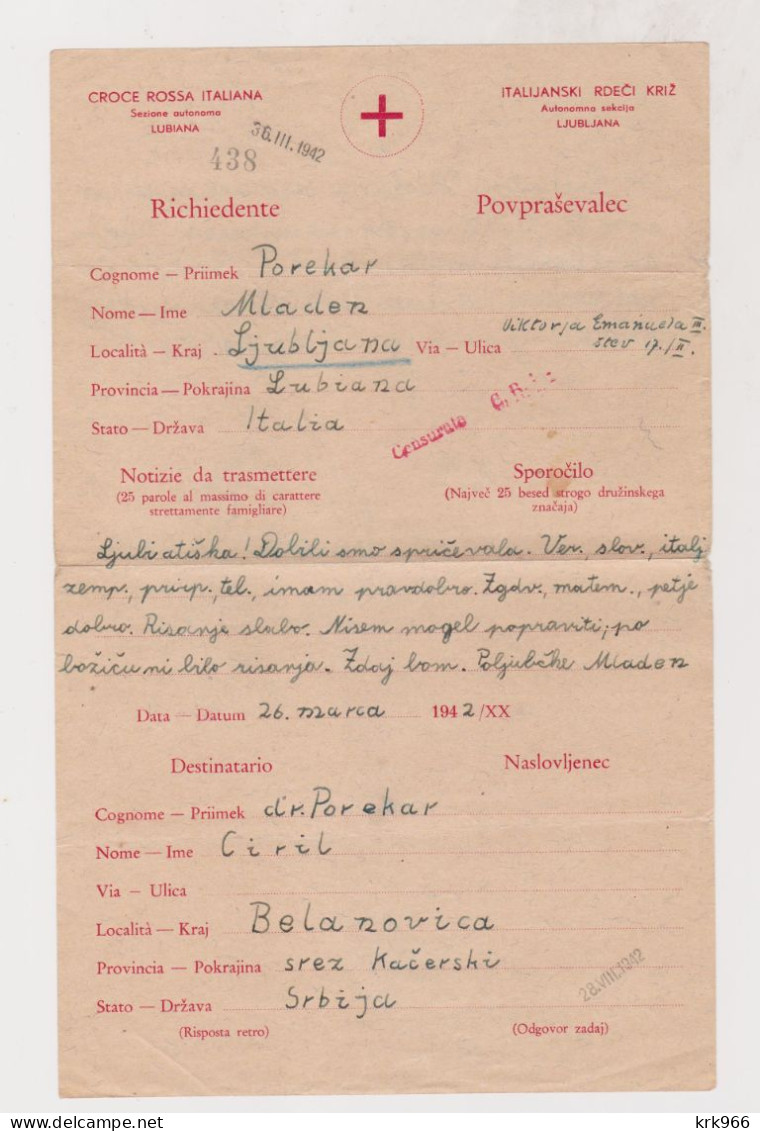 CROCE ROSSA ITALIANA
Sezione autonoma
LUBIANA
ITALIJANSKI RDEČI KRIŽ
Autonomna sekcija
LJUBLJANA
438
36.III.1942
Richiedente Povpraševalec
Cognome — Priimek Porekar
Nome — Ime Mladen
Località — Kraj Ljubljana Via — Ulica Viktorja Emanuela III.
štev 17./II.
Provincia — Pokrajina Lubiana
Stato — Država Italia
Censurato
Notizie da trasmettere
(25 parole al massimo di carattere
strettamente famigliare)
Sporočilo
(Največ 25 besed strogo družinskega
značaja)
Ljubi atiška! Dobili smo spričevala. Ver., slov., italj
zemp., prirp., tel., imam pravdobro. Zgdv., matem., petje
dobro. Risanje slabo. Nisem mogel popraviti; po
božiču ni bilo risanja. Zdaj bom. Poljubčke Mladen
Data — Datum 26. marca 1942/XX
Destinatario Naslovljenec
Cognome — Priimek dr. Porekar
Nome — Ime Ciril
Via — Ulica
Località — Kraj Belanovica
Provincia — Pokrajina srez Kačerski
Stato — Država Srbija
28.VIII.1942
(Risposta retro) (Odgovor zadaj)
krk966